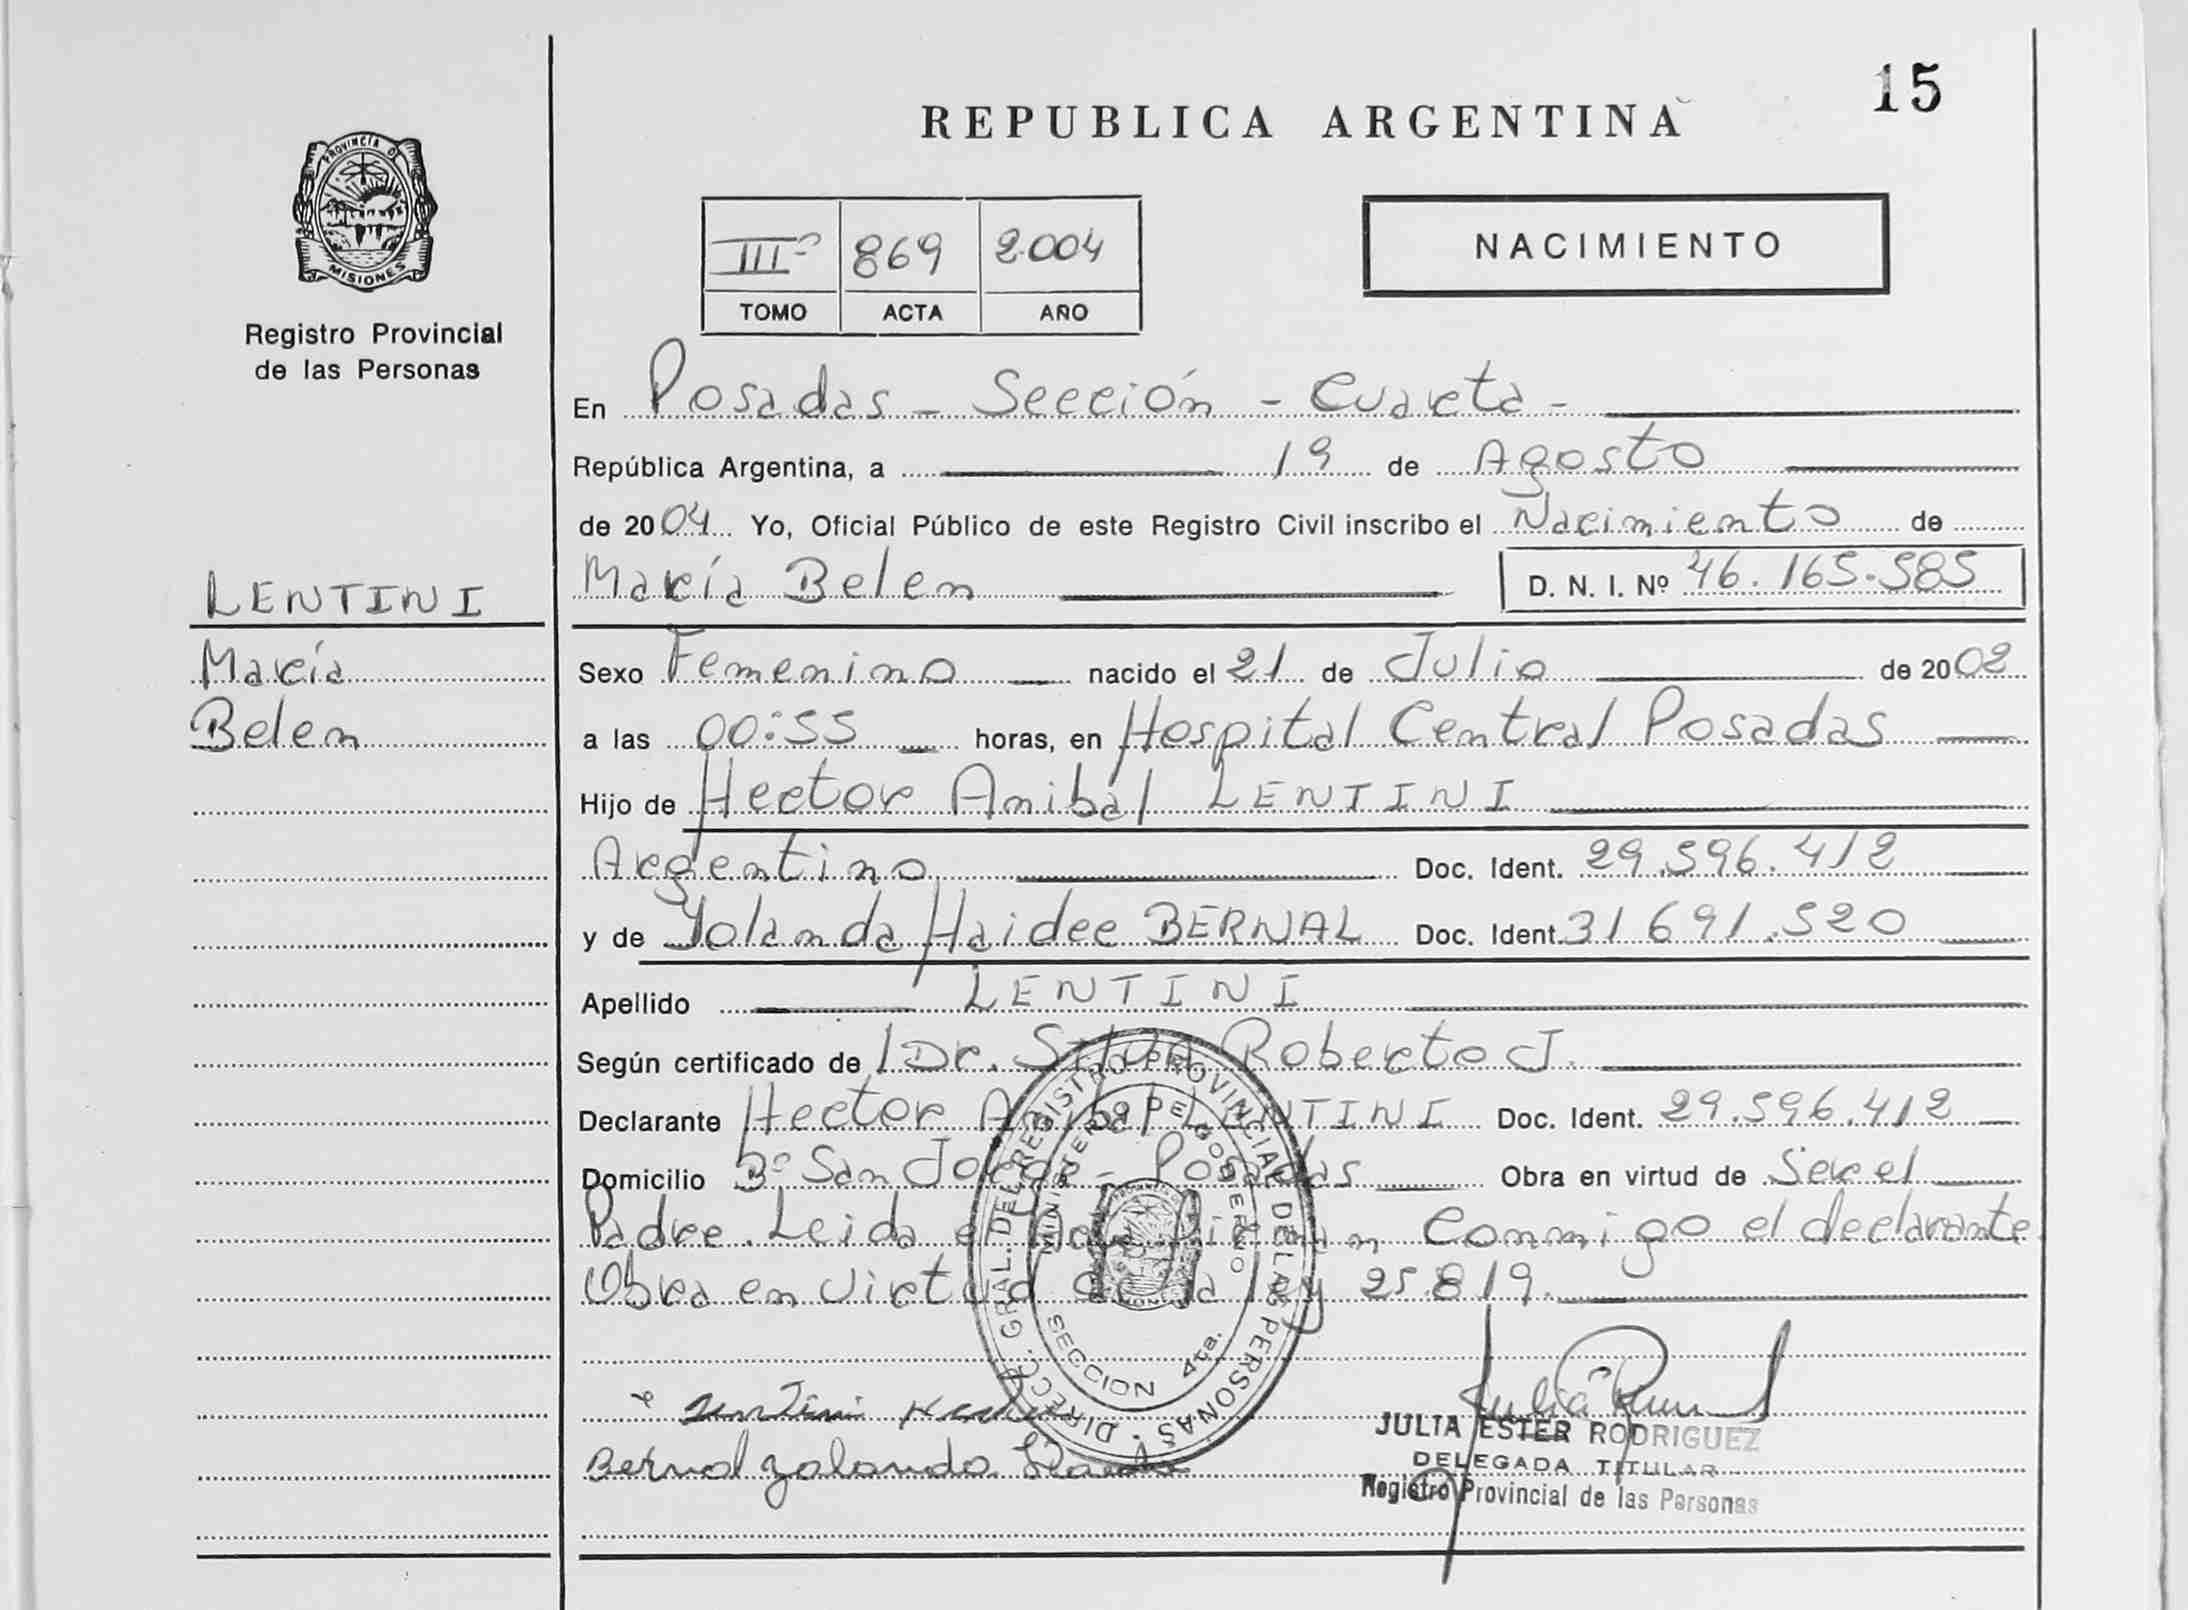 15
REPUBLICA ARGENTINA
PROVINCIA DE
MISIONES
Registro Provincial
de las Personas
IIIº 869 2.004
TOMO ACTA AÑO
NACIMIENTO
En Posadas - Sección - Cuarta -
República Argentina, a 19 de Agosto
de 2004 Yo, Oficial Público de este Registro Civil inscribo el Nacimiento de
María Belen D. N. I. Nº 46.165.585
LENTINI
María
Belen
Sexo Femenino nacido el 21 de Julio de 2002
a las 00:55 horas, en Hospital Central Posadas
Hijo de Hector Anibal LENTINI
Argentino Doc. Ident. 29.596.412
y de Yolanda Haidee BERNAL Doc. Ident. 31 691.520
Apellido LENTINI
Según certificado de Dr. Silva Roberto J.
Declarante Hector Anibal LENTINI Doc. Ident. 29.596.412
Domicilio Bº San Jorge - Posadas Obra en virtud de Ser el
Padre. Leida el Acta Firman Conmigo el declarante
Obra en virtud de la ley 25.819.
DIRECC. GRAL. DEL REGISTRO PROVINCIAL DE LAS PERSONAS
MINISTERIO DE GOBIERNO
SECCION 4ta.
Lentini
Bernal Yolanda
JULIA ESTER RODRIGUEZ
DELEGADA TITULAR
Registro Provincial de las Personas